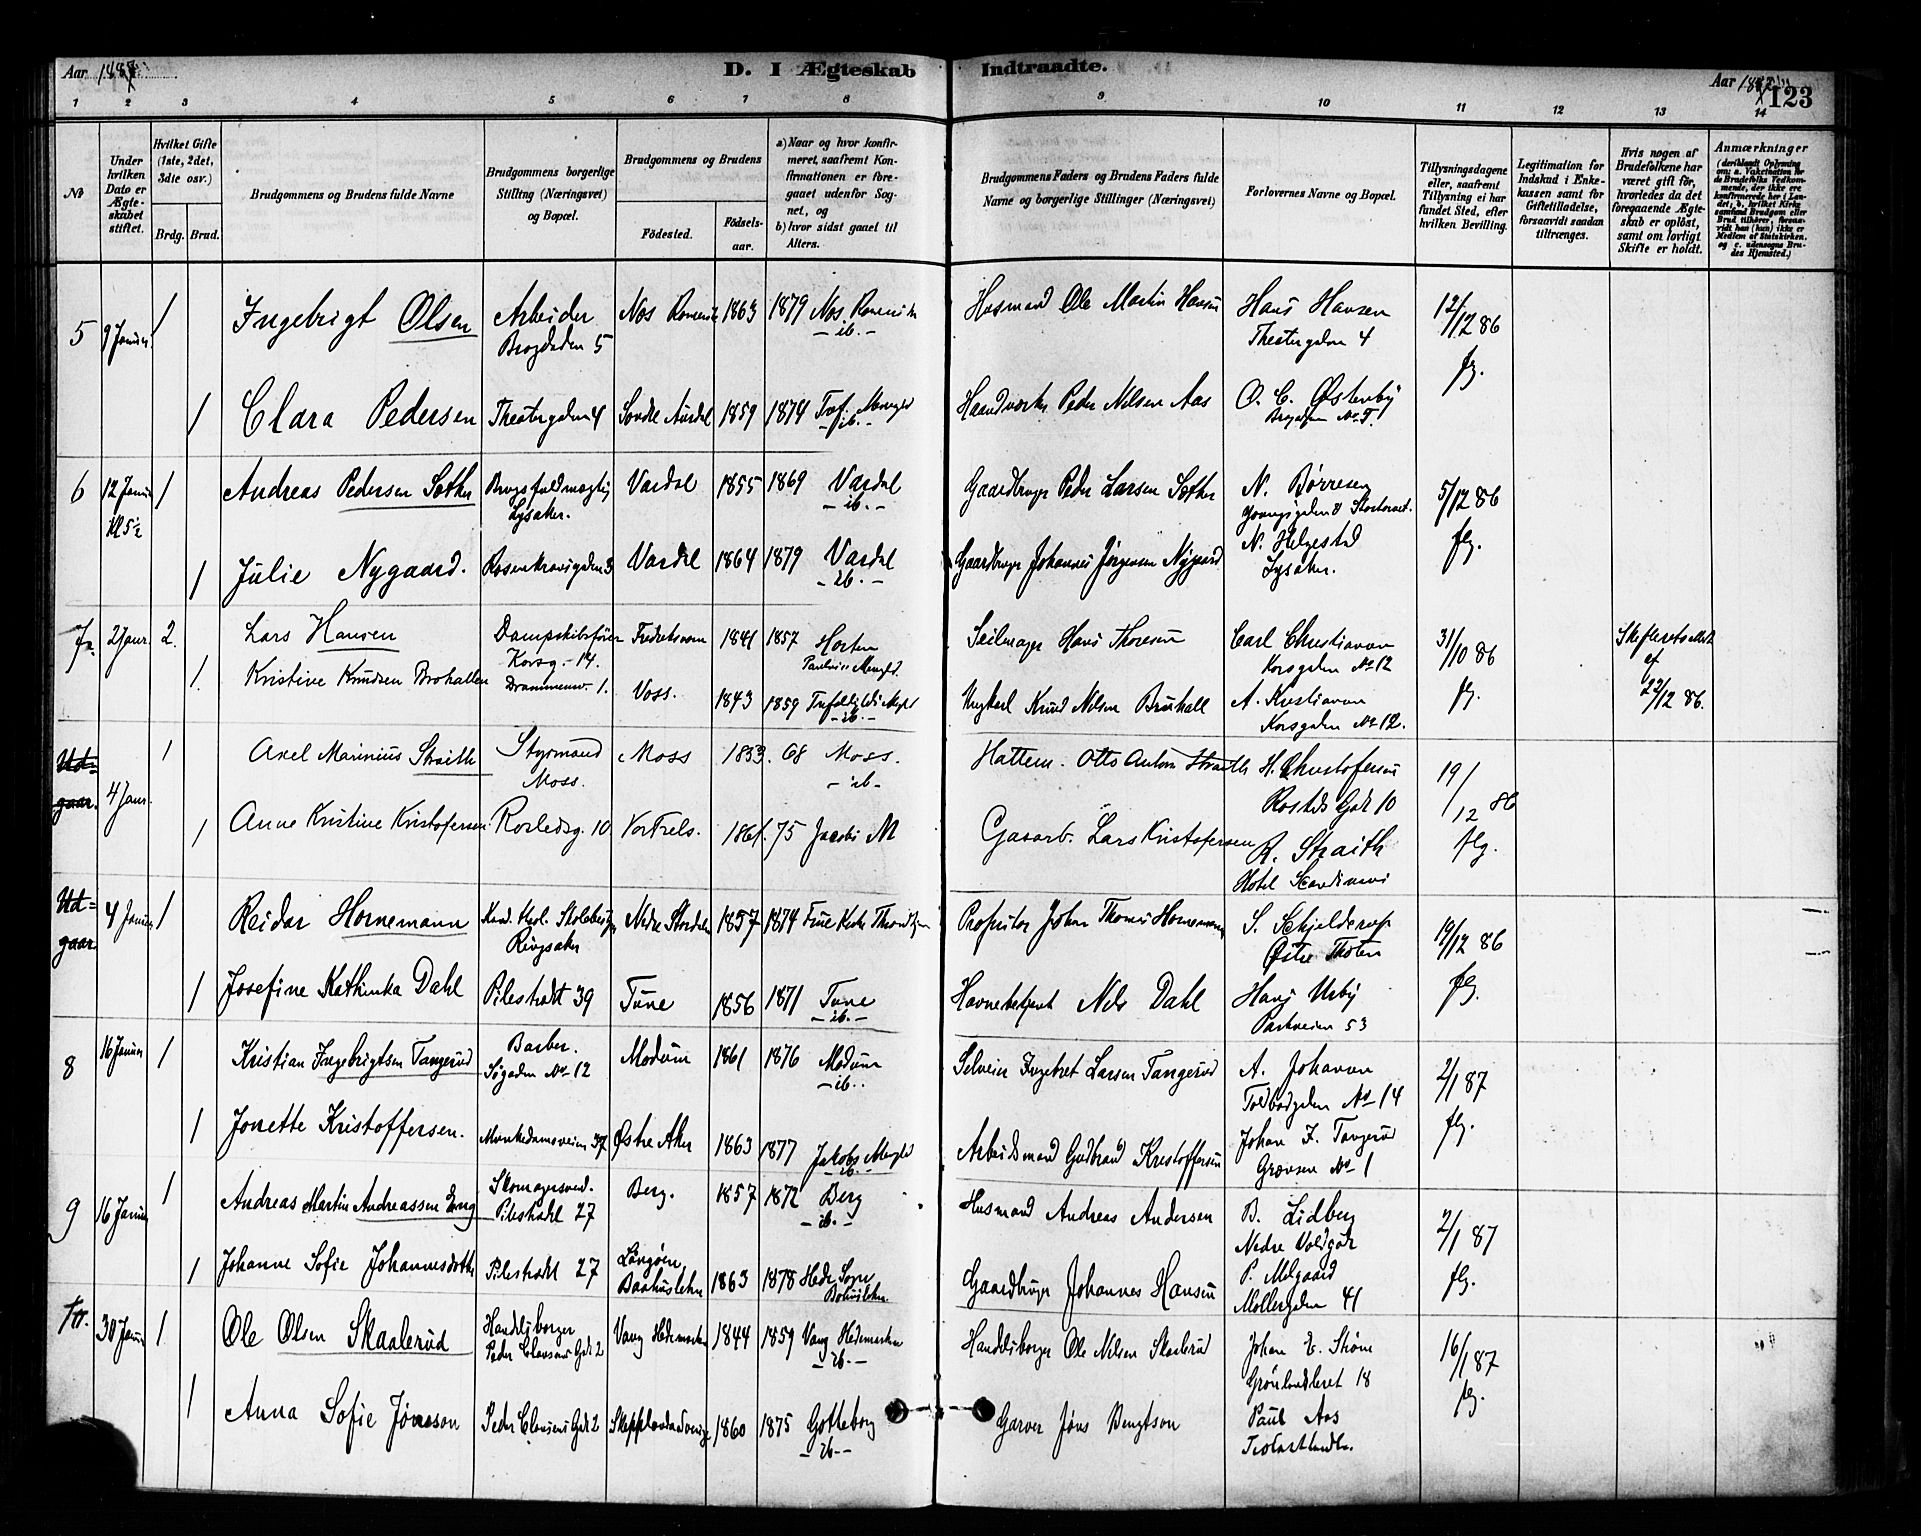 Aar 1887
D. I Ægteskab Indtraadte.
Aar 1887
123
1 2 3 4 5 6 7 8 9 10 11 12 13 14
No
Under hvilken Dato er Ægteskabet stiftet.
Hvilket Gifte (1ste, 2det, 3die osv.)
Brdg. Brud.
Brudgommens og Brudens fulde Navne
Brudgommens borgerlige Stilling (Næringsvei) og Bopæl.
Brudgommens og Brudens
Födested.
Födselsaar.
a) Naar og hvor konfirmeret, saafremt Konfirmationen er foregaaet udenfor Sognet, og
b) hvor sidst gaaet til Alters.
Brudgommens Faders og Brudens Faders fulde Navne og borgerlige Stillinger (Næringsvei)
Forlovernes Navne og Bopæl.
Tillysningsdagene eller, saafremt Tillysning ei har fundet Sted, efter hvilken Bevilling.
Legitimation for Indskud i Enkekassen samt for Giftetilladelse, forsaavidt saadan tiltrænges.
Hvis nogen af Brudefolkene har været gift før, hvorledes da det foregaaende Ægteskab er oplöst, samt om lovligt Skifte er holdt.
Anmærkninger
5 9 Januar 1 Ingebrigt Olsen Arbeider Nes Romerike 1863 1879 Nes Romerike Husmand Ole Martin Hansen Hans Hansen 12/12 86
Brogaden 5 - ib. - Theatergaden 4
flg.
1 Clara Pedersen Theatergaden 4 Søndre Aurdal 1859 1874 Tref. Menighed Haandværker Peder Nilsen Aas O. C. Østenby
- ib. -
6 12 Januar 1 Andreas Pedersen Sæther Brugsfuldmægtig Vardal 1855 1869 Vardal Gaardbruger Peder Larsen Sæther N. Børresen 5/12 86
Kl 5½ Lysaker. - ib. -
1 Julie Nygaard. Rosenkrantzgaden 3 Vardal 1864 1879 Vardal Gaardbruger Johannes Jørgensen Nygaard N. Helgestad flg.
- ib. - Lysaker.
7 2 Janr. 2. Lars Hansen Dampskibsfører Fredriksværn 1841 1857 Horten Seilmager Hans Thoresen Carl Christiansen 31/10 86
Korsg. 14. Korsgaden No 12
Skifteretsattest af 22/12 86.
1. Kristine Knudsen Brohallen Drammensv. 1. Voss. 1843 1859 Knud Nilsen Bruhall A. Kristiansen flg.
- ib. - Korsgaden No 12.
Udgaar. 4 Janr. 1 Axel Marinius Straith Styrmand Moss 1853. 68 Moss. Hattem. Otto Anton Straith H. Christofersen 19/12 86
Moss. - ib - Rosteds Gade 10
1 Anne Kristine Kristofersen Rostedsg. 10 Vor Frels. 1861. 75 Jacobi M Gasarb. Lars Kristofersen R. Straith flg.
Hotel Scandinavi
Udgaar 4 Januar 1 Reidar Hornemann Kand. theol. Skolebestyrer Nedre Stordalen 1857 1874 Frue Kirke Throndhjem Proprietær Johan Thomas Hornemann S. Schjelderup 19/12 86
Ringsaker Østre Thoten
1 Josefine Kathinka Dahl Pilestrædet 39 Tune 1856 1871 Tune Havnebetjent Nils Dahl Hans Urby flg.
- ib. - Parkveien 53
8 16 Januar 1 Kristian Ingebrigtsen Tangerud Barber. Modum 1861 1876 Modum Selveier Ingebret Larsen Tangerud A. Johansen 2/1 87
Søgaden No 12 - ib. - Toldbodgaden No 14
1 Jonette Kristoffersen. Munkedamsveien 37 Østre Aker 1863 1877 Jakobs Menighed Arbeidsmand Gudbrand Kristoffersen Johan I. Tangerud flg.
- ib. - Grænsen No 1
9 16 Januar 1 Andreas Martin Andreassen Eng Skomagersvend. Berg. 1857 1872 Berg Husmand Andreas Andersen B. Lidberg 2/1 87
Pilestrædet 27 - ib. - Nedre Voldgade
1 Johanne Sofie Johannesdotter Pilestrædet 27 Baahuslehn 1863 1878 Gaardbruger Johannes Hansen P. Melgaard flg.
Møllergaden 41
10. 30 Januar 1. Ole Olsen Skaalerud Handelsborger Vang Hedemarken 1844 1859 Vang Hedemarken Handelsborger Ole Nilsen Skaalerud Johan E. Strøm 16/1 87
Peder Clausens Gade 2 - ib. - Grønlandsleret 18
1 Anna Sofie Jönsson Peder Clausens Gade 2 Skepplanda Sverige 1860 1875 Gøtteborg Garver Jöns Bengtson Paul Aas flg.
- ib. -